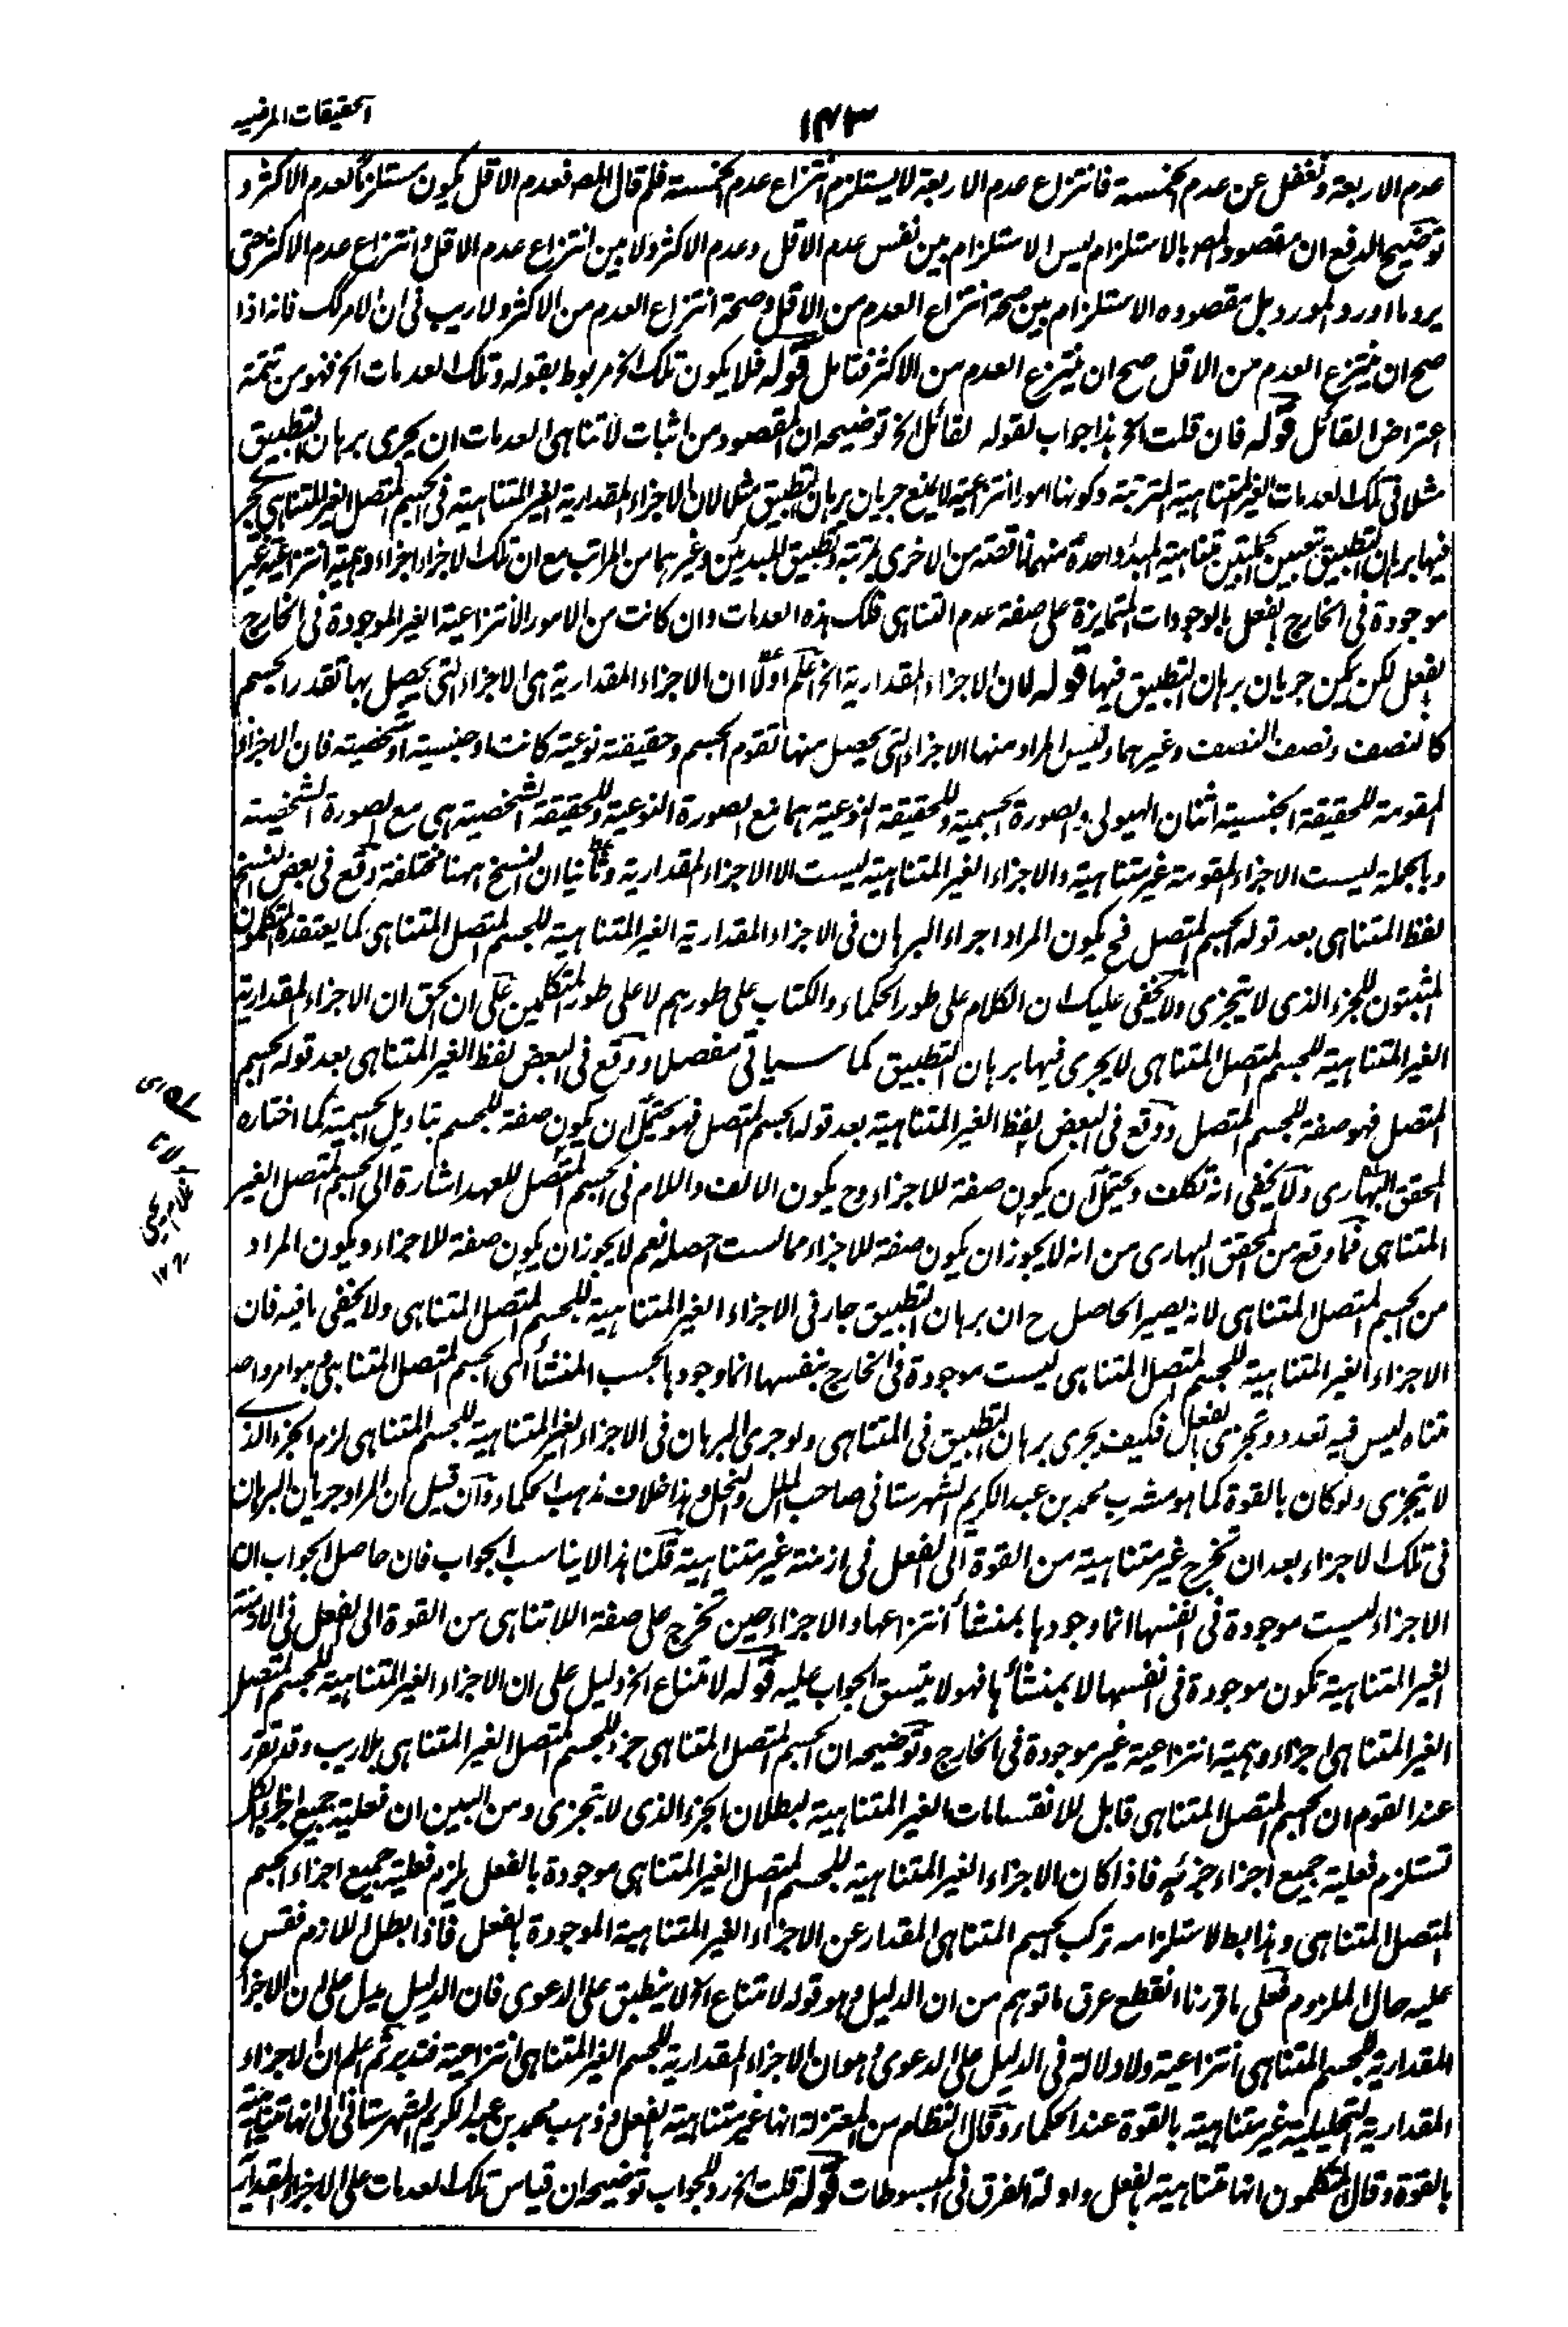 التحقيقات المرضيه
١٤٣
عدم الاربعة ونغفل عن عدم الخمسة فانتزاع عدم الاربعة لا يستلزم انتزاع عدم الخمسة فلم قال المصـ فعدم الاقل يكون مستلزما لعدم الاكثر و
توضيح الدفع ان مقصود المصـ بالاستلزام ليس الاستلزام بين نفس عدم الاقل وعدم الاكثر ولا بين انتزاع عدم الاقل وانتزاع عدم الاكثر حتى
يرد ما اورد المورد بل مقصوده الاستلزام بين صحة انتزاع العدم من الاقل وصحة انتزاع العدم من الاكثر ولا ريب في ان الامر كك فانه اذا
صح ان ينتزع العدم من الاقل صح ان ينتزع العدم من الاكثر فتامل قوله فلا يكون تلك الخ مربوط بقوله وتلك العدمات الخ فهو من تتمة
اعتراض القائل قوله فان قلت الخ هذا جواب لقوله لقائل الخ توضيحه ان المقصود من اثبات لا تناهي العدمات ان يجرى برهان التطبيق
مثلا في تلك العدمات الغير المتناهية المترتبة وكونها امورا انتزاعية لا يمنع جريان برهان التطبيق مثلا لان الاجزاء المقدارية الغير المتناهية في الجسم المتصل الغير المتناهي يجرى
فيها برهان التطبيق بتعيين جملتين متناهية المبدء واحدة منهما ناقصة من الاخرى بمرتبة وتطبيق المبدئين وغيرهما من المراتب مع ان تلك الاجزاء اجزاء وهمية انتزاعية غير
موجودة في الخارج بالفعل بالوجودات المتمايزة على صفة عدم التناهي فكك هذه العدمات وان كانت من الامور الانتزاعية الغير الموجودة في الخارج
بالفعل لكن يمكن جريان برهان التطبيق فيها قوله لان الاجزاء المقدارية الخ اعلم اولا ان الاجزاء المقدارية هي الاجزاء التي يحصل بها تقدر الجسم
كالنصف ونصف النصف وغيرهما وليس المراد منها الاجزاء التي يحصل منها تقوم الجسم وحقيقته نوعية كانت او جنسية او شخصية فان الاجزاء
المقومة للحقيقة الجنسية اثنان الهيولى والصورة الجسمية وللحقيقة النوعية هما مع الصورة النوعية وللحقيقة الشخصية هي مع الصورة الشخصية
وبالجملة ليست الاجزاء المقومة غير متناهية والاجزاء الغير المتناهية ليست الا الاجزاء المقدارية وثانيا ان النسخ ههنا مختلفة وقع في بعض النسخ
لفظ المتناهي بعد قوله الجسم المتصل فح يكون المراد اجراء البرهان في الاجزاء المقدارية الغير المتناهية للجسم المتصل المتناهي كما يعتقده المتكلمون
المثبتون للجزء الذي لا يتجزى ولا يخفى عليك ان الكلام على طور الحكماء والكتاب على طورهم لا على طور المتكلمين على ان الحق ان الاجزاء المقدارية
الغير المتناهية للجسم المتصل المتناهي لا يجرى فيها برهان التطبيق كما سياتي مفصلا ووقع في البعض لفظ الغير المتناهي بعد قوله الجسم
المتصل فهو صفة للجسم المتصل ووقع في البعض لفظ الغير المتناهية بعد قوله الجسم المتصل فهو يحتمل ان يكون صفة للجسم بتاويل الجسمية كما اختاره
المحقق البهارى ولا يخفى انه تكلف ويحتمل ان يكون صفة للاجزاء وح يكون الالف واللام في الجسم المتصل للعهد اشارة الى الجسم المتصل الغير
المتناهي فما وقع من المحقق البهارى من انه لا يجوز ان يكون صفة للاجزاء مما لست احصله نعم لا يجوز ان يكون صفة للاجزاء ويكون المراد
من الجسم المتصل المتناهي لانه يصير الحاصل ح ان برهان التطبيق جار في الاجزاء الغير المتناهية للجسم المتصل المتناهي ولا يخفى ما فيه فان
الاجزاء الغير المتناهية للجسم المتصل المتناهي ليست موجودة في الخارج بنفسها انما وجودها بحسب المنشأ اى الجسم المتصل المتناهي وهو امر واحد
متناه ليس فيه تعدد وتجزى بالفعل فكيف يجرى برهان التطبيق في المتناهي ولو جرى البرهان في الاجزاء الغير المتناهية للجسم المتناهي لزم الجزء الذى
لا يتجزى ولو كان بالقوة كما هو مشرب محمد بن عبد الكريم الشهرستاني صاحب الملل والنحل وهذا خلاف مذهب الحكماء وان قيل ان المراد جريان البرهان
في تلك الاجزاء بعد ان تخرج غير متناهية من القوة الى الفعل في ازمنة غير متناهية قلنا هذا لا يناسب الجواب فان حاصل الجواب ان
الاجزاء ليست موجودة في انفسها انما وجودها بمنشأ انتزاعها والاجزاء حين تخرج على صفة اللاتناهي من القوة الى الفعل في الازمنة
الغير المتناهية تكون موجودة في انفسها لا بمنشأها فهو لا يتسق الجواب عليه قوله لامتناع الخ دليل على ان الاجزاء الغير المتناهية للجسم المتصل
الغير المتناهي اجزاء وهمية انتزاعية غير موجودة في الخارج وتوضيحه ان الجسم المتصل المتناهي جزء للجسم المتصل الغير المتناهي بلا ريب وقد تقرر
عند القوم ان الجسم المتصل المتناهي قابل للانقسامات الغير المتناهية لبطلان الجزء الذي لا يتجزى ومن البين ان فعلية جميع اجزاء الكل
تستلزم فعلية جميع اجزاء جزئه فاذا كان الاجزاء الغير المتناهية للجسم المتصل الغير المتناهي موجودة بالفعل يلزم فعلية جميع اجزاء الجسم
المتصل المتناهي وهذا بط لاستلزامه تركب الجسم المتناهي المقدار عن الاجزاء الغير المتناهية الموجودة بالفعل فاذا بطل اللازم فقس
عليه حال الملزوم فعلى ما قررنا انقطع عرق ما توهم من ان الدليل وهو قوله لامتناع الخ لا ينطبق على الدعوى فان الدليل يدل على ان الاجزاء
المقدارية للجسم المتناهي انتزاعية ولا دلالة في الدليل على الدعوى وهو ان الاجزاء المقدارية للجسم الغير المتناهي انتزاعية فتدبر ثم اعلم ان الاجزاء
المقدارية التحليلية غير متناهية بالقوة عند الحكماء وقال النظام من المعتزلة انها غير متناهية بالفعل وذهب محمد بن عبد الكريم الشهرستاني الى انها متناهية
بالقوة وقال المتكلمون انها متناهية بالفعل وادلة الفرق في المبسوطات قوله قلت الخ رد للجواب توضيحه ان قياس تلك العدمات على الاجزاء المقدارية